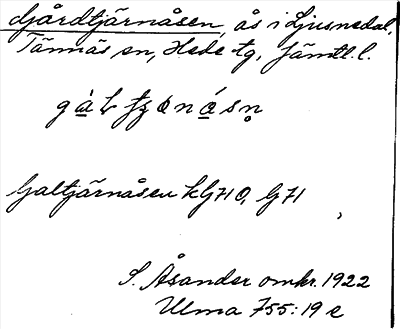 Gårdtjärnåsen, ås i Ljusnedal,
Tännäs sn, Hede tg, Jämtl. l.
Galtjärnåsen kG71 Ö, G71
S. Åsander omkr. 1922
Ulma 755:19 e